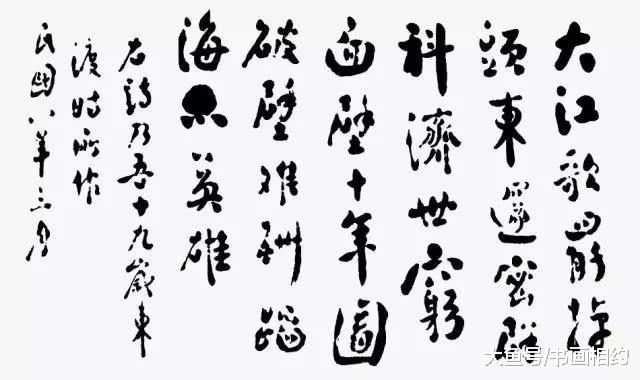 大江歌罷掉
頭東邃密群
科濟世窮
面壁十年圖
破壁難酬蹈
海亦英雄
右詩乃吾十九歲東
渡時所作
民國八年三月
大鱼号/书画相约